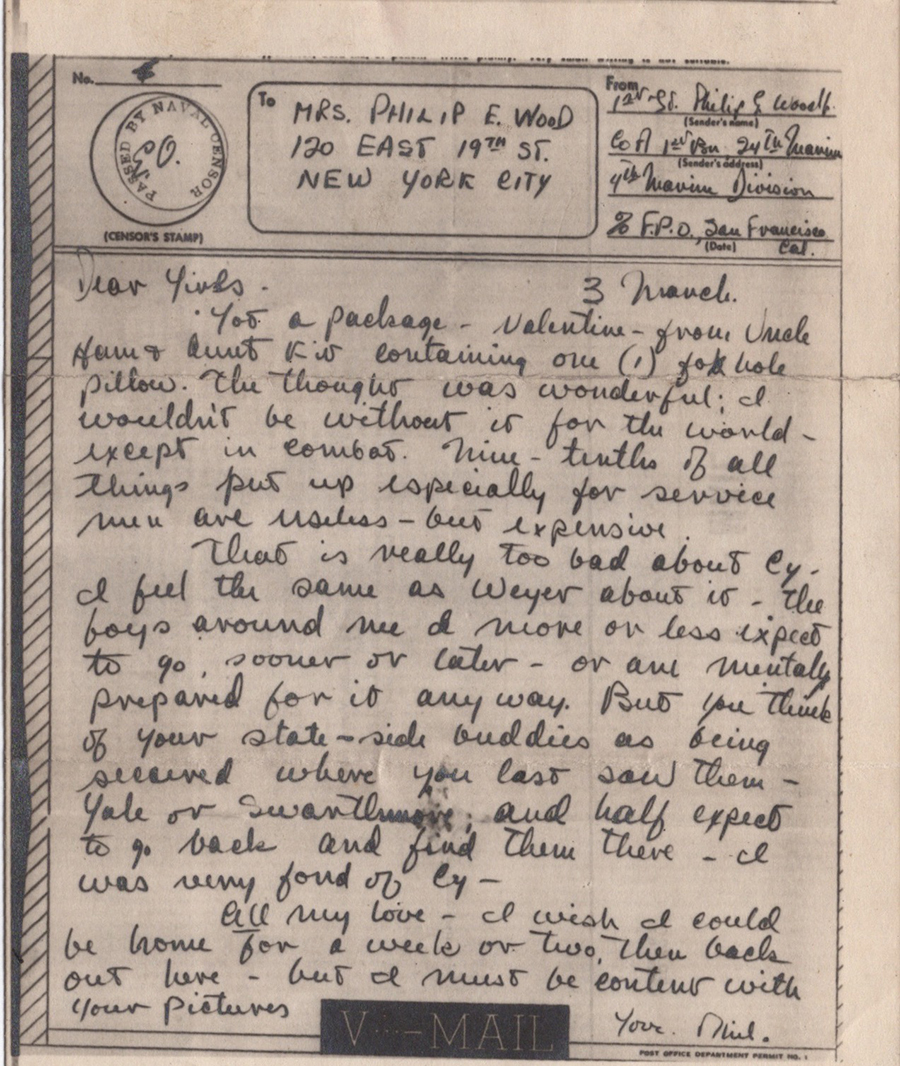 No.
PASSED BY NAVAL CENSOR
(CENSOR'S STAMP)
To
MRS. PHILIP E. WOOD
120 EAST 19TH ST.
NEW YORK CITY
From
1st Lt. Philip E Wood Jr.
(Sender's name)
Co A 1st Bn. 24th Marines
(Sender's address)
4th Marine Division
% F.P.O., San Francisco
(Date) Cal.
3 March.
Dear
Got a package - Valentine - from Uncle
& Aunt containing one (1) foxhole
pillow. The thought was wonderful; I
wouldn't be without it for the world -
except in combat. Nine-tenths of all
things put up especially for service
men are useless - but expensive.
That is really too bad about Cy -
I feel the same as Weyer about it - the
boys around me I more or less expect
to go, sooner or later - or am mentally
prepared for it anyway. But you think
of your state-side buddies as being
secured where you last saw them -
Yale or Swarthmore; and half expect
to go back and find them there - I
was very fond of Cy -
All my love - I wish I could
be home for a week or two, then back
out here - but I must be content with
your pictures
Your Phil.
V-MAIL
POST OFFICE DEPARTMENT PERMIT NO. 1